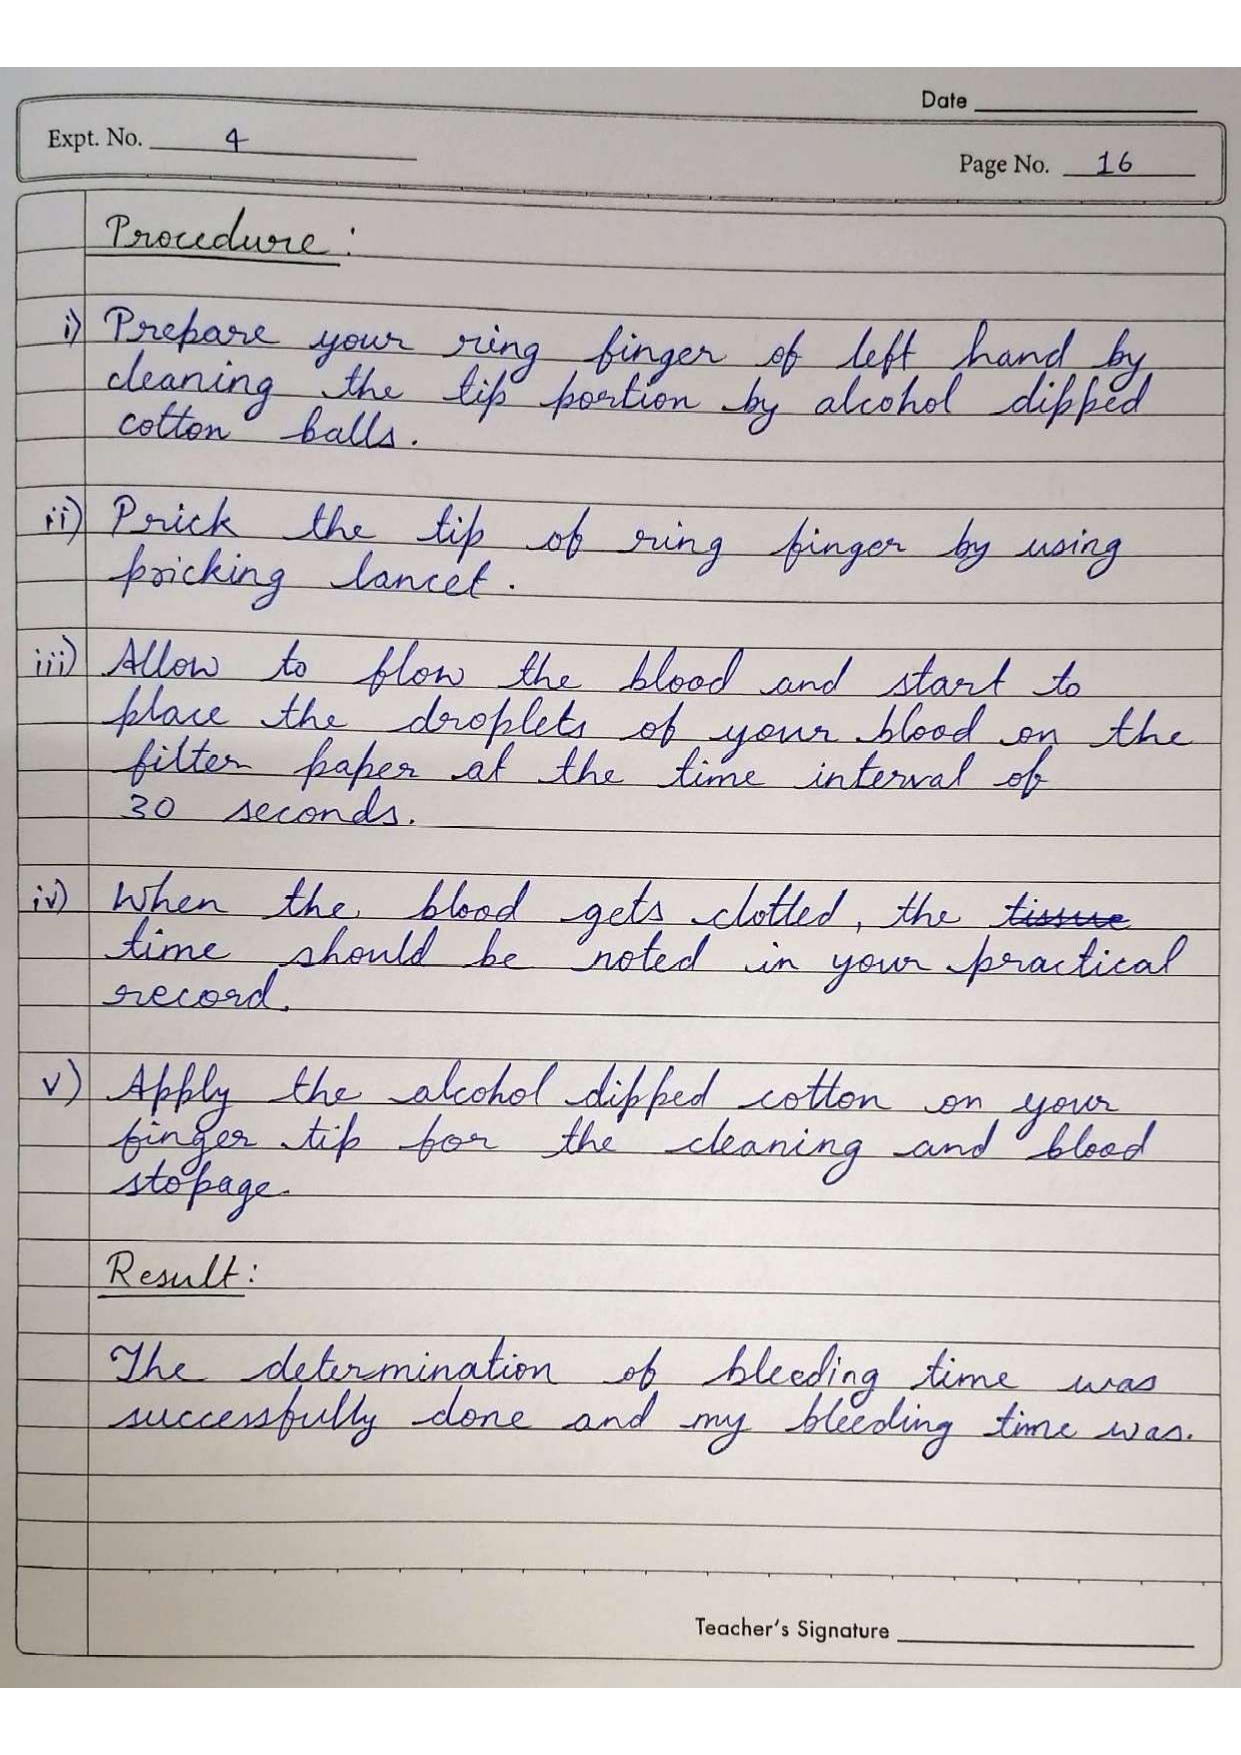 Date
Expt. No. 4
Page No. 16
Procedure:
i) Prepare your ring finger of left hand by
cleaning the tip portion by alcohol dipped
cotton balls.
ii) Prick the tip of ring finger by using
pricking lancet.
iii) Allow to flow the blood and start to
place the droplets of your blood on the
filter paper at the time interval of
30 seconds.
iv) When the blood gets clotted, the tissue
time should be noted in your practical
record.
v) Apply the alcohol dipped cotton on your
finger tip for the cleaning and blood
stopage.
Result:
The determination of bleeding time was
successfully done and my bleeding time was.
Teacher's Signature